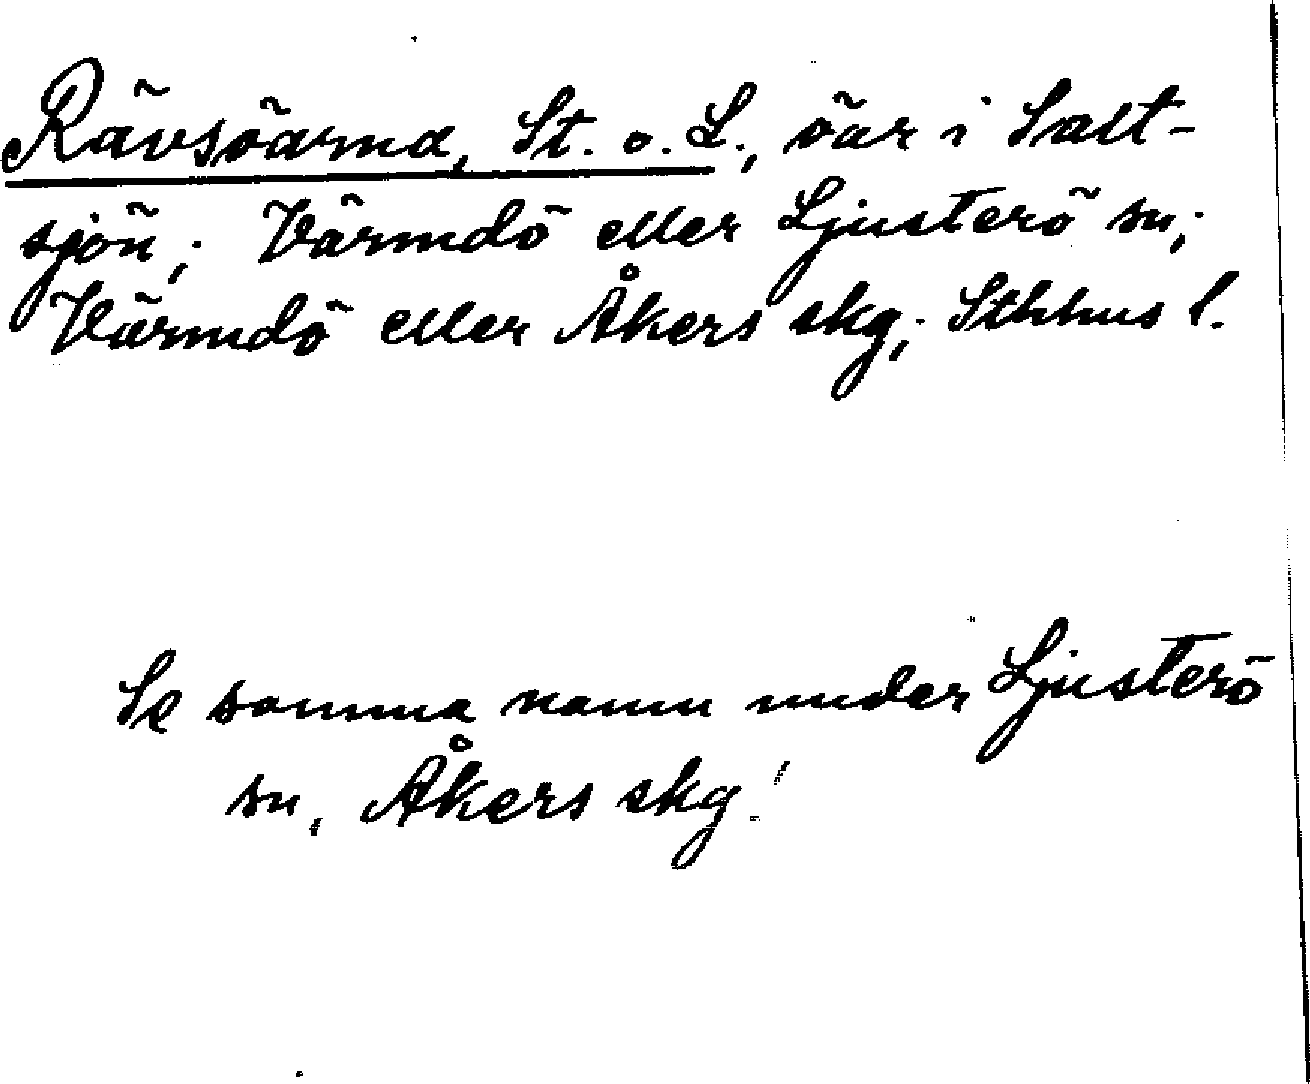 Rävsöarna, St. o. L., öar i Salt-
sjön; Värmdö eller Ljusterö sn;
Värmdö eller Åkers skg; Sthhus l.
Se samma namn under Ljusterö
sn, Åkers skg!